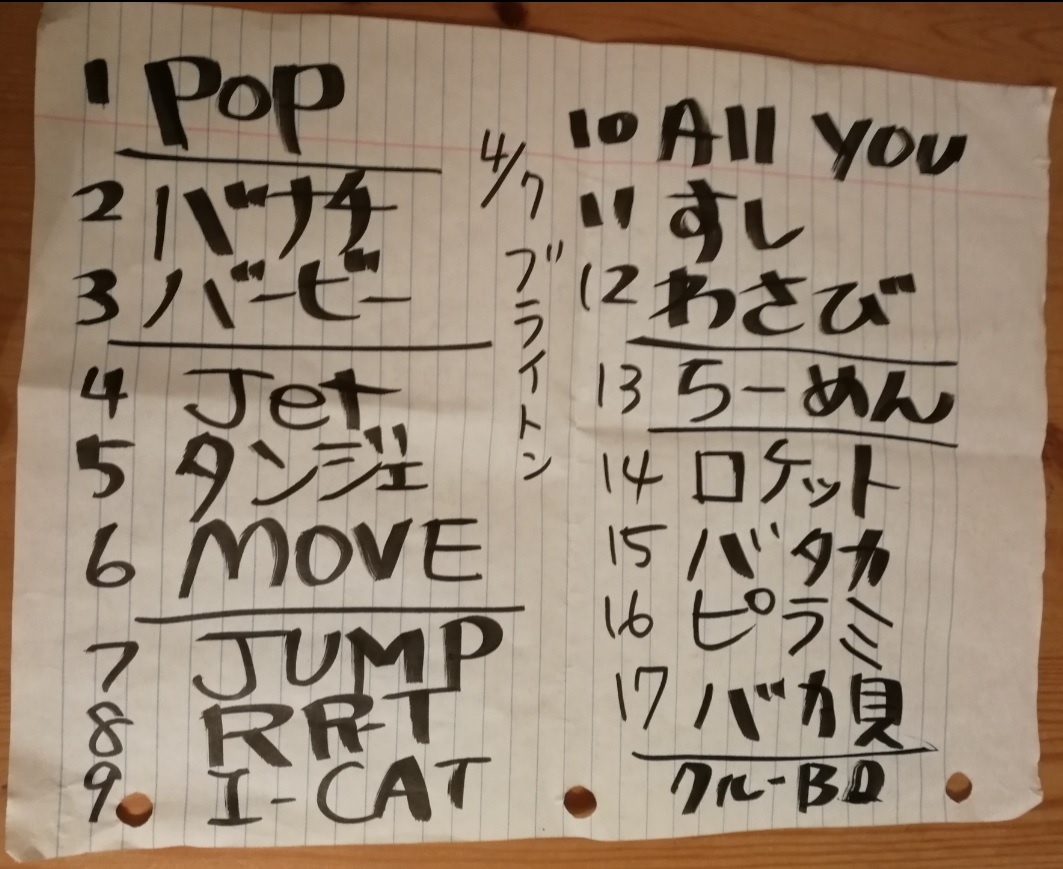 1 Pop
2 バナチ
3 バービー
4 Jet
5 タンジェ
6 MOVE
7 JUMP
8 RR-T
9 I-CAT
4/7 ブライトン
10 All You
11 すし
12 わさび
13 らーめん
14 ロケット
15 バタカ
16 ピラミ
17 バカ貝
クルーBD